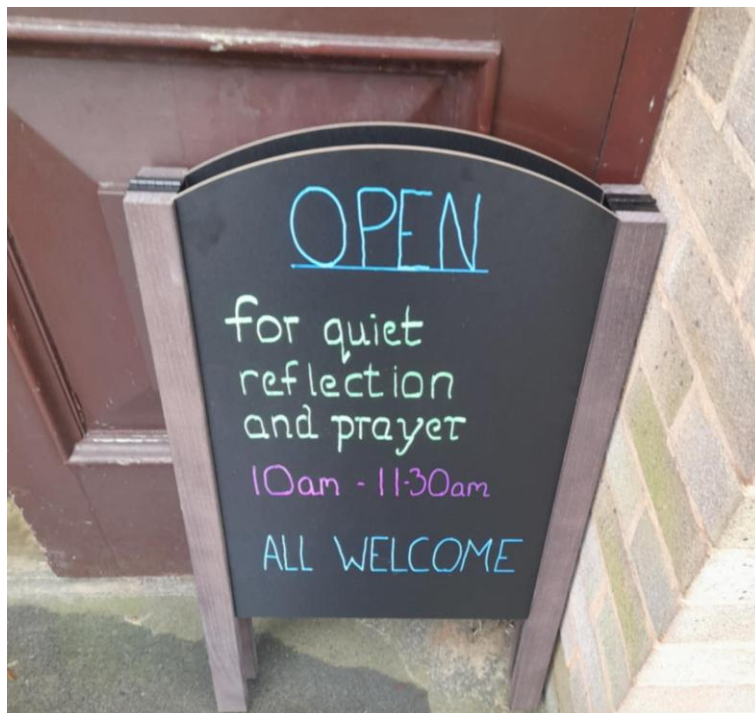 OPEN
for quiet
reflection
and prayer
10am - 11·30am
ALL WELCOME